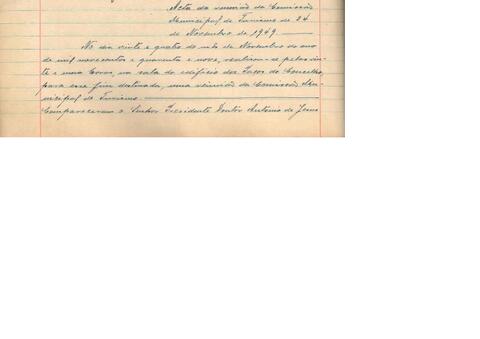 Acta da reunião da Comissão
Municipal de Turismo de 24
de Novembro de 1949.
No dia vinte e quatro do mês de Novembro do ano
de mil novecentos e quarenta e nove, realizou-se pelas vin-
te e uma horas, na sala do edifício dos Paços do Concelho,
para esse fim destinada, uma reunião da Comissão Mu-
nicipal de Turismo.
Compareceram o Senhor Presidente Doutor António de Jesus